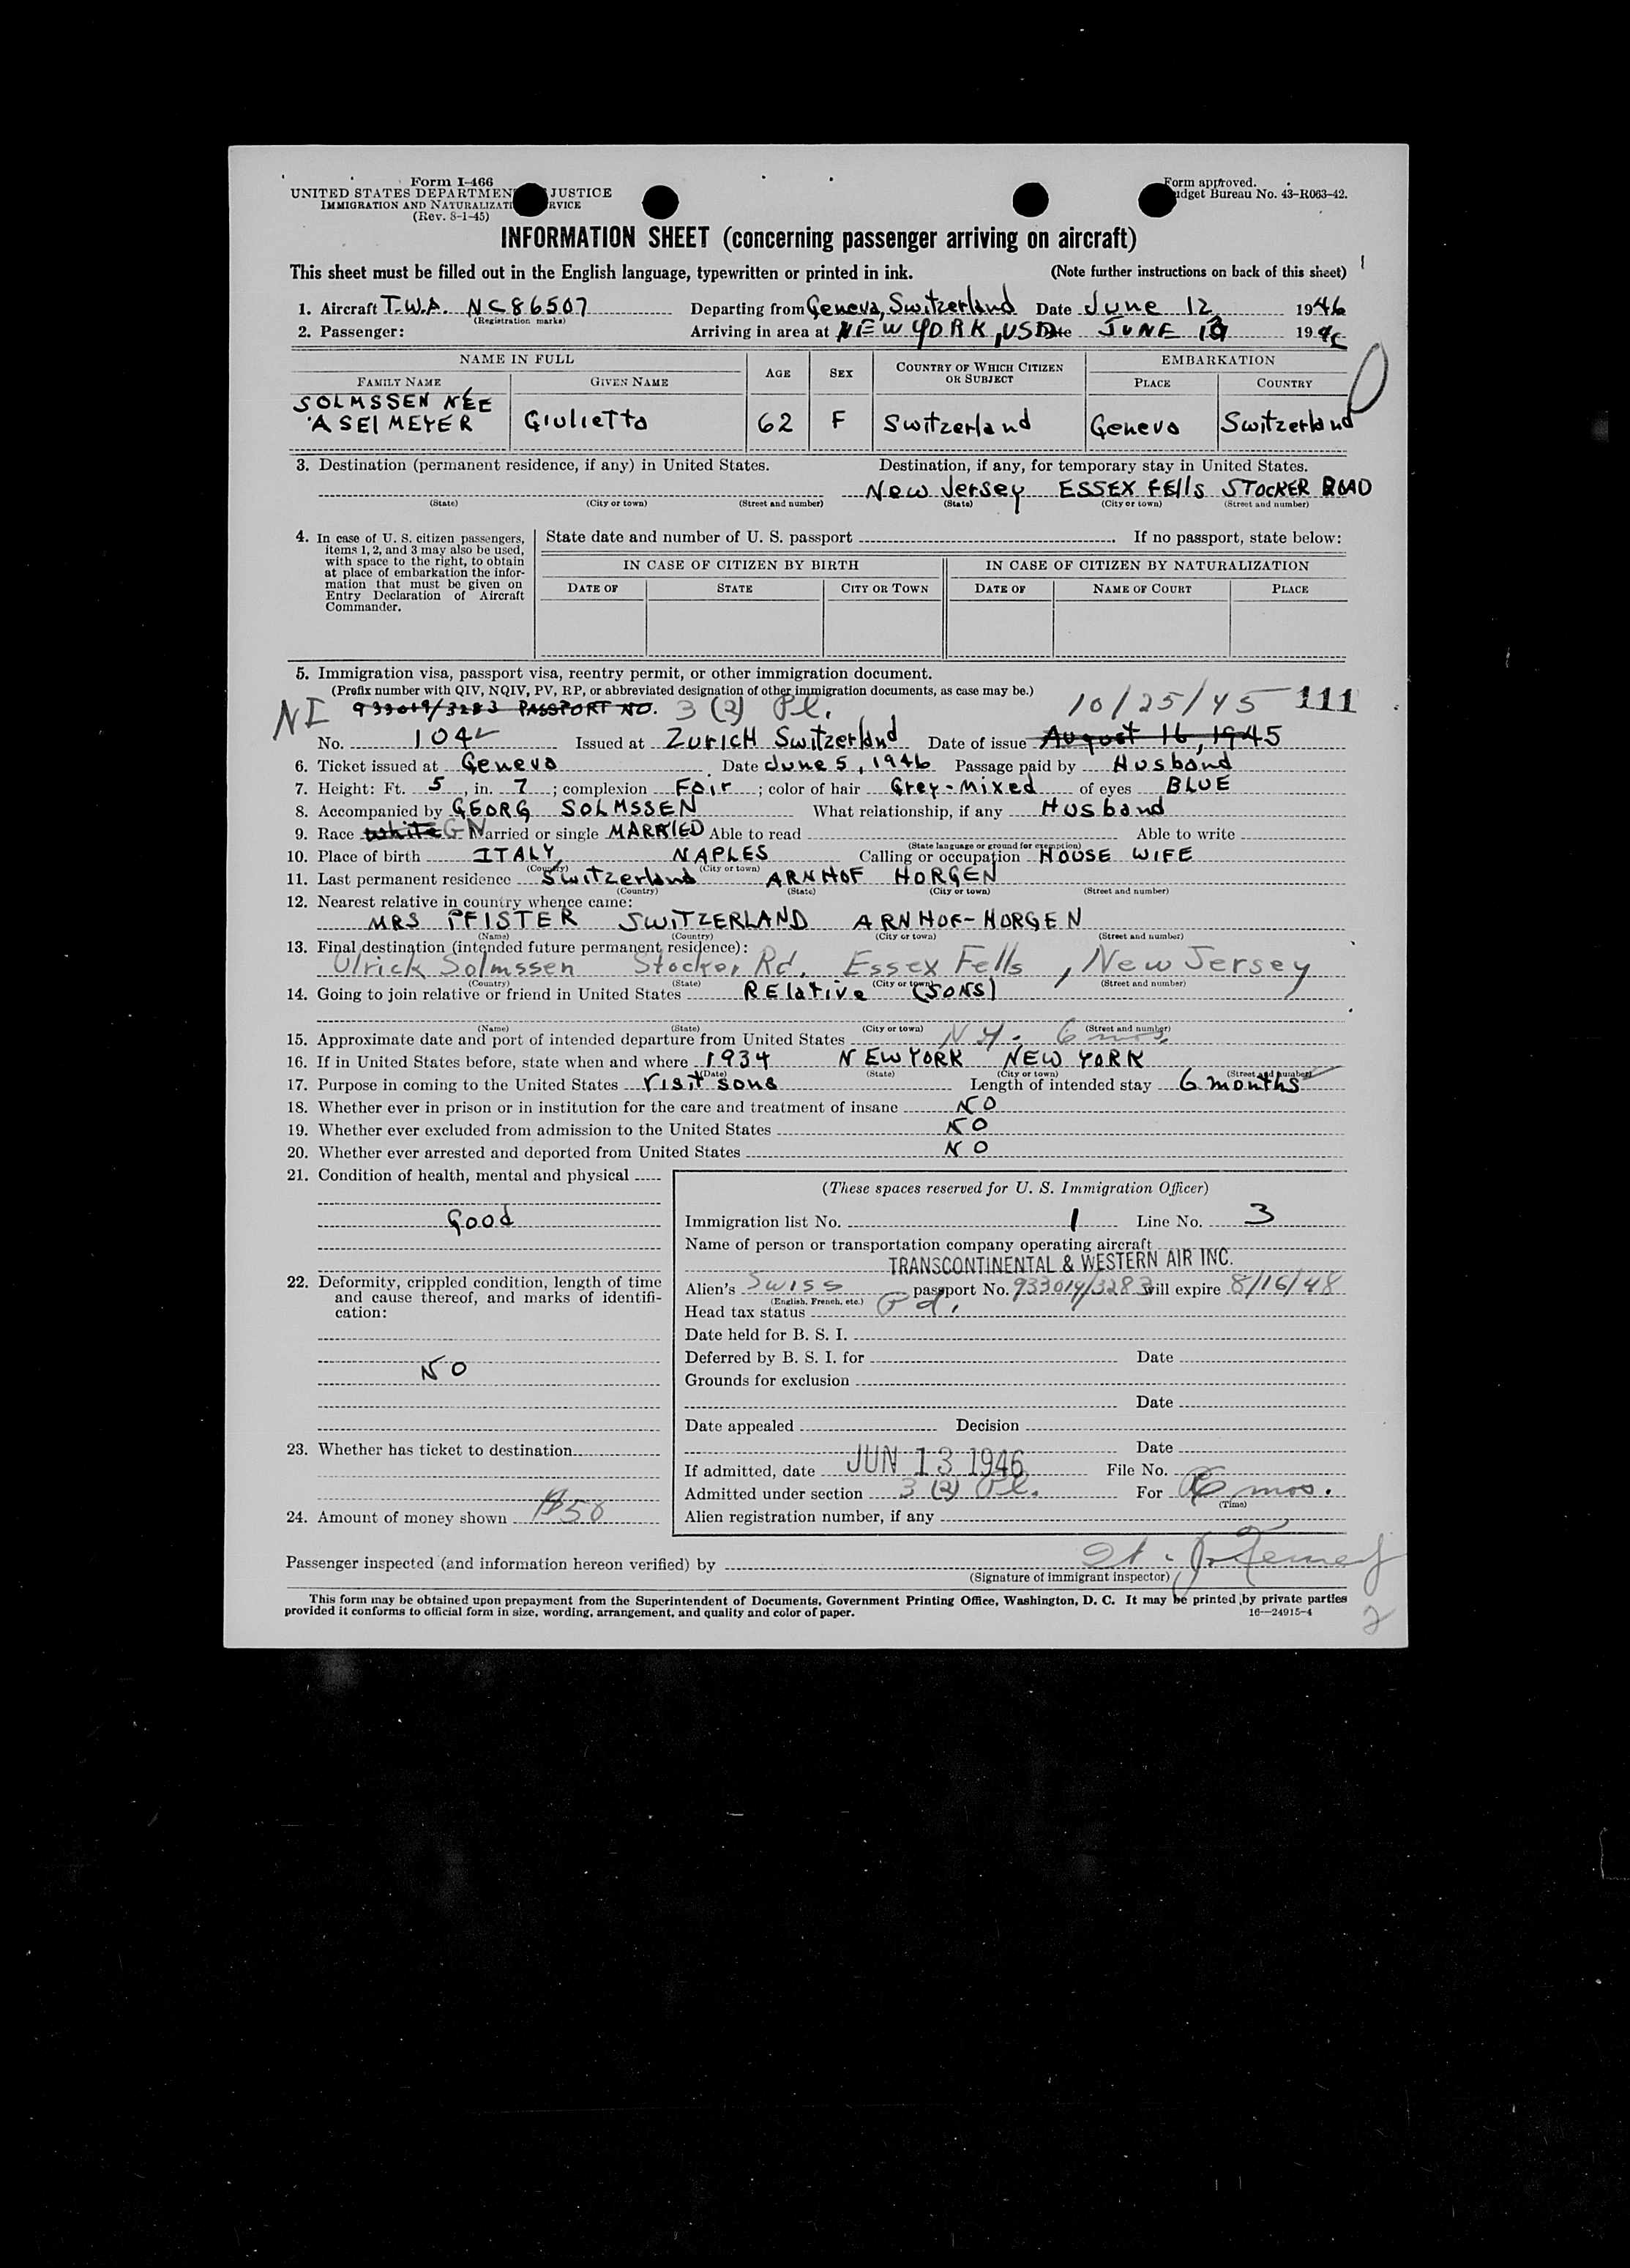 Form I-466
UNITED STATES DEPARTMEN JUSTICE
IMMIGRATION AND NATURALIZATI RVICE
(Rev. 8-1-45)
Form approved.
udget Bureau No. 43-R063-42.
INFORMATION SHEET (concerning passenger arriving on aircraft)
This sheet must be filled out in the English language, typewritten or printed in ink. (Note further instructions on back of this sheet)
1. Aircraft T.W.A. NC86507 Departing from Geneva, Switzerland Date June 12 1946
(Registration marks)
2. Passenger: Arriving in area at NEW YORK, USA Date JUNE 13 1946
NAME IN FULL AGE SEX COUNTRY OF WHICH CITIZEN OR SUBJECT EMBARKATION
FAMILY NAME GIVEN NAME PLACE COUNTRY
SOLMSSEN NÉE
ASELMEYER Giulietta 62 F Switzerland Geneva Switzerland
3. Destination (permanent residence, if any) in United States. Destination, if any, for temporary stay in United States.
New Jersey ESSEX FEllS STOCKER ROAD
(State) (City or town) (Street and number) (State) (City or town) (Street and number)
4. In case of U. S. citizen passengers, items 1, 2, and 3 may also be used, with space to the right, to obtain at place of embarkation the information that must be given on Entry Declaration of Aircraft Commander.
State date and number of U. S. passport If no passport, state below:
IN CASE OF CITIZEN BY BIRTH IN CASE OF CITIZEN BY NATURALIZATION
DATE OF STATE CITY OR TOWN DATE OF NAME OF COURT PLACE
5. Immigration visa, passport visa, reentry permit, or other immigration document.
(Prefix number with QIV, NQIV, PV, RP, or abbreviated designation of other immigration documents, as case may be.)
NI 933019/3283 PASSPORT NO. 3 (2) Pl. 10/25/45 111
No. 1042 Issued at ZURICH Switzerland Date of issue August 16, 1945
6. Ticket issued at Geneva Date June 5, 1946 Passage paid by Husband
7. Height: Ft. 5, in. 7; complexion Fair; color of hair Grey-Mixed of eyes BLUE
8. Accompanied by GEORG SOLMSSEN What relationship, if any Husband
9. Race white GN Married or single MARRIED Able to read Able to write
(State language or ground for exemption)
10. Place of birth ITALY, NAPLES Calling or occupation HOUSE WIFE
(Country) (City or town)
11. Last permanent residence Switzerland ARNHOF HORGEN
(Country) (State) (City or town) (Street and number)
12. Nearest relative in country whence came:
MRS PFISTER SWITZERLAND ARNHOF-HORGEN
(Name) (Country) (City or town) (Street and number)
13. Final destination (intended future permanent residence):
Ulrick Solmssen Stocker Rd. Essex Fells, New Jersey
(Country) (State) (City or town) (Street and number)
14. Going to join relative or friend in United States RElative (SONS)
(Name) (State) (City or town) (Street and number)
15. Approximate date and port of intended departure from United States N.Y. 6 mos.
16. If in United States before, state when and where 1934 NEW YORK NEW YORK
(Date) (State) (City or town) (Street and number)
17. Purpose in coming to the United States Visit sons Length of intended stay 6 months
18. Whether ever in prison or in institution for the care and treatment of insane NO
19. Whether ever excluded from admission to the United States NO
20. Whether ever arrested and deported from United States NO
21. Condition of health, mental and physical
Good
22. Deformity, crippled condition, length of time and cause thereof, and marks of identification:
NO
23. Whether has ticket to destination
24. Amount of money shown $50
(These spaces reserved for U. S. Immigration Officer)
Immigration list No. 1 Line No. 3
Name of person or transportation company operating aircraft
TRANSCONTINENTAL & WESTERN AIR INC.
Alien's Swiss passport No. 933019/3283 will expire 8/16/48
(English, French, etc.)
Head tax status Pd.
Date held for B. S. I.
Deferred by B. S. I. for Date
Grounds for exclusion
Date
Date appealed Decision
Date
If admitted, date JUN 13 1946 File No.
Admitted under section 3 (2) Pl. For 6 mos.
(Time)
Alien registration number, if any
Passenger inspected (and information hereon verified) by
(Signature of immigrant inspector)
This form may be obtained upon prepayment from the Superintendent of Documents, Government Printing Office, Washington, D. C. It may be printed by private parties
provided it conforms to official form in size, wording, arrangement, and quality and color of paper. 16—24915-4
2